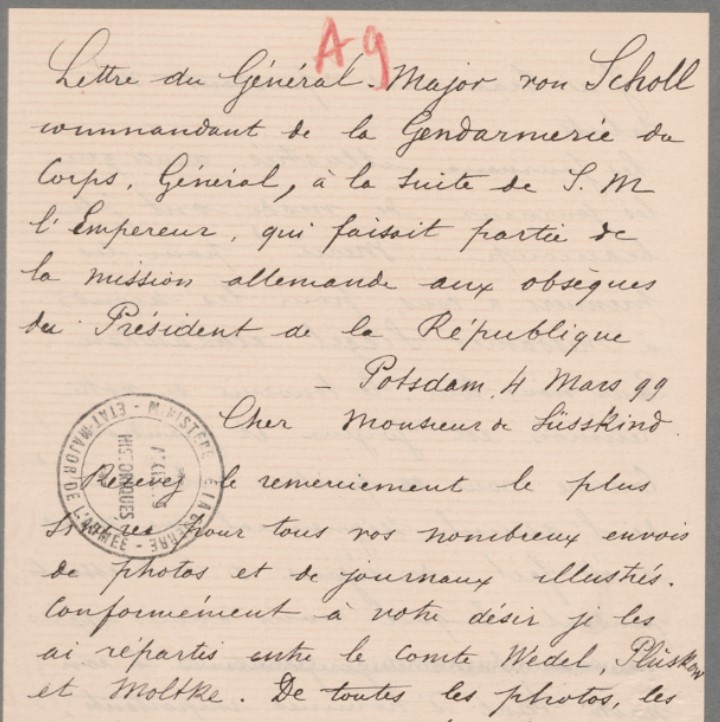 Ag
Lettre du Général-Major von Scholl
commandant de la Gendarmerie du
Corps, Général, à la suite de S. M
l'Empereur, qui faisait partie de
la mission allemande aux obsèques
du Président de la République
- Potsdam, 4 Mars 99
Cher Monsieur de Süsskind.
Recevez le remerciement le plus
pour tous vos nombreux envois
de photos et de journaux illustrés.
Conformément à votre désir je les
ai répartis entre le comte Wedel, Plüskow
et Moltke. De toutes les photos, les
MINISTÈRE DE LA GUERRE - ÉTAT-MAJOR DE L'ARMÉE -
HISTORIQUES